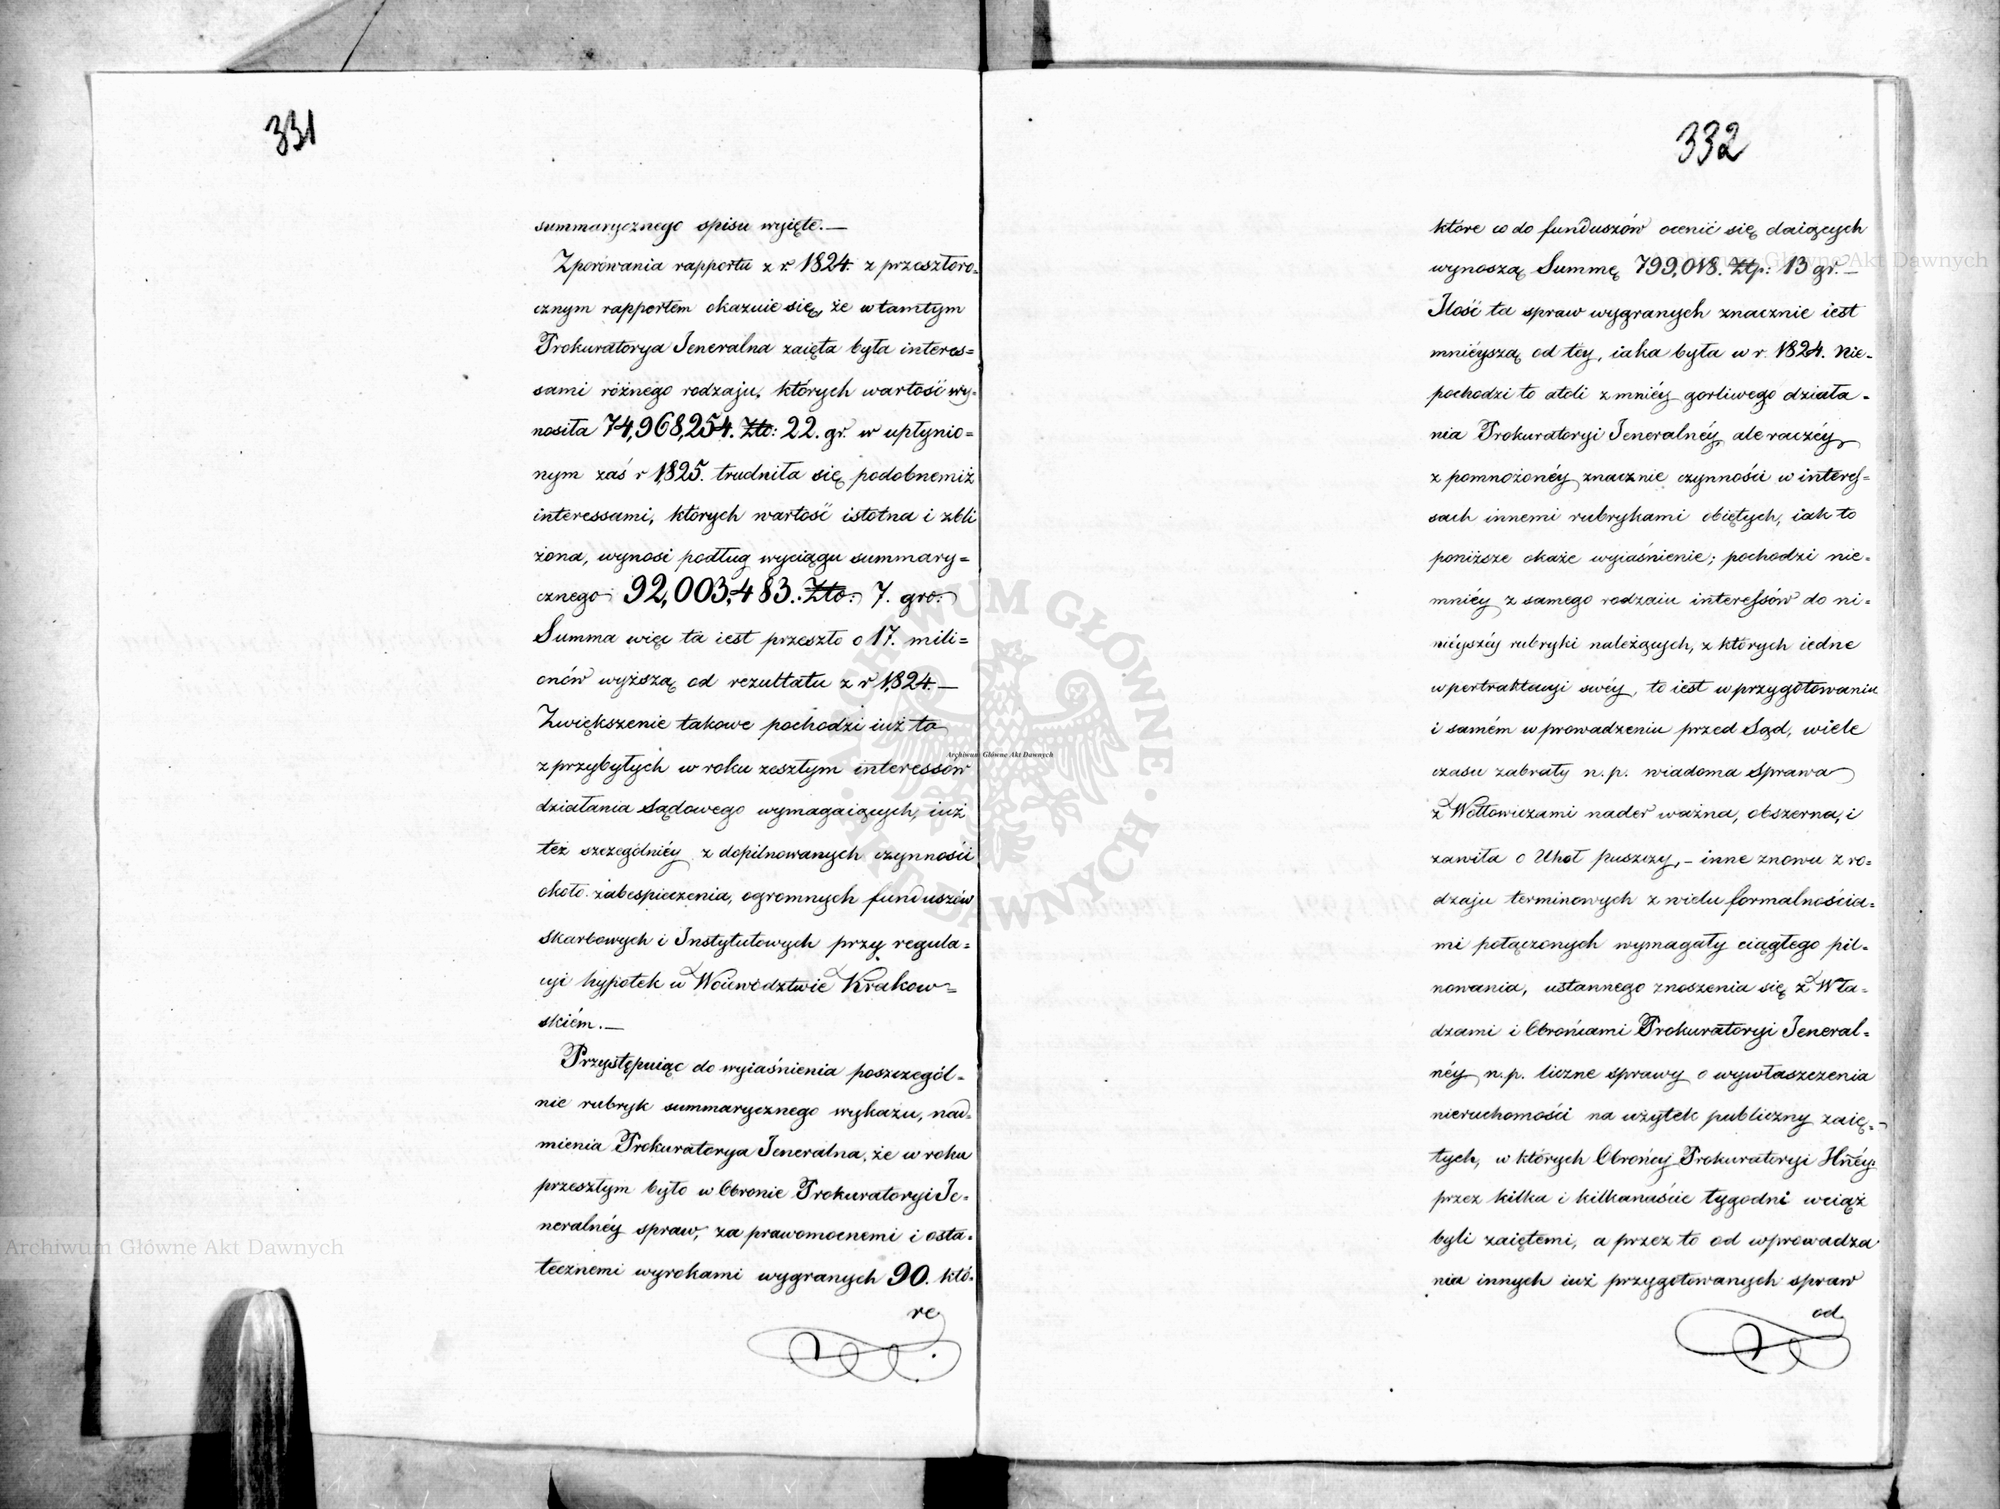 331
summarycznego spisu wyięte.—
Zporównania rapportu z r. 1824. z przeszłoro-
cznym rapportem okazuie się, że w tamtym
Prokuratorya Jeneralna zaięta była interes=
sami różnego rodzaju, których wartość wy-
nosiła 74,968,254. Zło: 22. gr. w upłynio=
nym zaś r 1825. trudniła się podobnemiż
interessami, których wartość istotna i zbli
żona, wynosi podług wyciągu summary=
cznego 92,003,483. Zło: 7. gro:
Summa więc ta iest przeszło o 17. mili=
onów wyższą od rezultatu z r 1824.—
Zwiększenie takowe pochodzi iuż to
z przybyłych w roku zeszłym interessów
działania Sądowego wymagaiących, iuż
też szczególniéy z dopilnowanych czynności
około zabespieczenia, ogromnych funduszów
skarbowych i Instytutowych przy regula=
cyi hypotek w Woiewództwie Krakow=
skiém.—
Przystępuiąc do wyiaśnienia poszczegól-
nie rubryk summarycznego wykazu, nad-
mienia Prokuratorya Jeneralna, że w roku
przeszłym było w Obronie Prokuratoryi Je-
neralnéy spraw, za prawomocnemi i osta-
tecznemi wyrokami wygranych 90. któ-
re
332
które co do funduszów ocenić się daiących
wynoszą Summę 799,018. Złp: 13 gr.—
Ilość ta spraw wygranych znacznie iest
mniéyszą od téy, iaka była w r. 1824. Nie-
pochodzi to atoli z mniéy gorliwego działa-
nia Prokuratoryi Jeneralnéy, ale raczéy
z pomnożonéy znacznie czynności w interes=
sach innemi rubrykami obiętych, iak to
poniższe okaże wyiaśnienie; pochodzi nie-
mniéy z samego rodzaiu interessów do ni=
niéyszéy rubryki należących, z których iedne
w pertraktacyi swéy, to iest w przygotowaniu
i samém wprowadzeniu przed Sąd, wiele
czasu zabrały n. p. wiadoma Sprawa
z Wołłowiczami nader ważna, obszerna, i
zawiła o Uhoł puszczy,– inne znowu z ro=
dzaju terminowych z wielu formalnościa=
mi połączonych wymagały ciągłego pil-
nowania, ustannego znoszenia się z Wła-
dzami i Obrońcami Prokuratoryi Jeneral=
néy n. p. liczne sprawy o wywłaszczenia
nieruchomości na użytek publiczny zaię-
tych, w których Obrońcy Prokuratoryi Jlnéy
przez kilka i kilkanaście tygodni wciąż
byli zaiętemi, a przez to od wprowadza
nia innych iuż przygotowanych spraw
od
Archiwum Główne Akt Dawnych